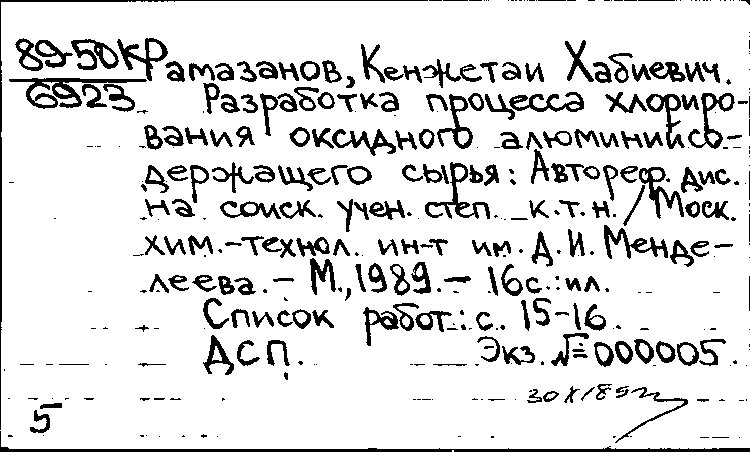 89-50К Рамазанов, Кенжетаи Хабиевич.
6923 Разработка процесса хлориро-
вания оксидного алюминийсо-
держащего сырья: Автореф. дис.
на соиск. учен. степ. к.т.н. / Моск.
хим.-технол. ин-т им. Д.И. Менде-
леева. - М., 1989. - 16с.: ил.
Список работ: с. 15-16.
ДСП. Экз. №000005.
5